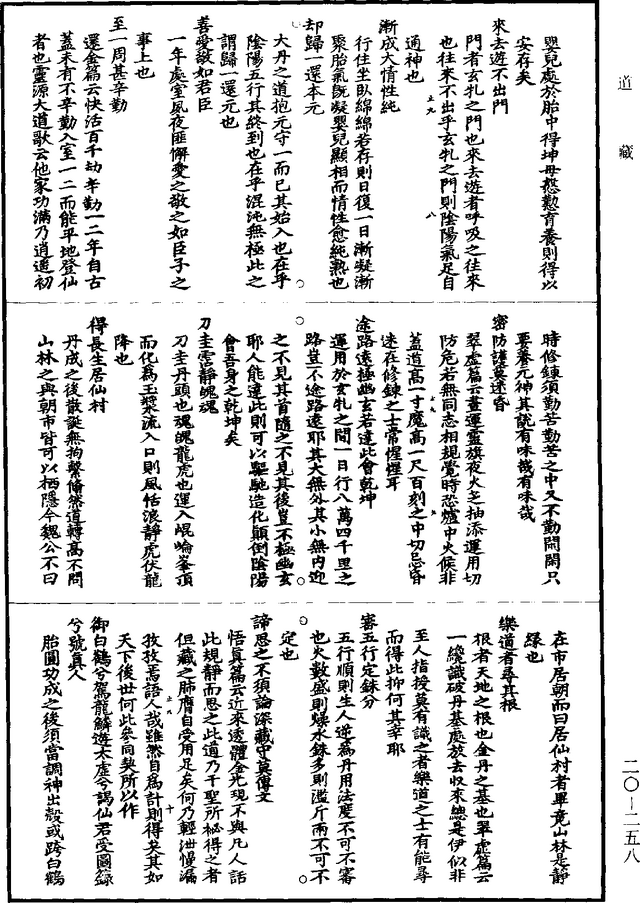 道藏
嬰兒處於胎中得坤母慇懃育養則得以
安存矣
來去遊不出門
門者玄牝之門也來去遊者呼吸之往來
也往來不出乎玄牝之門則陰陽氣足自
通神也
漸成大情性純
行住坐臥綿綿若存則日復一日漸凝漸
聚胎氣既凝嬰兒顯相而情性愈純熟也
却歸一還本元
大丹之道抱元守一而已其始入也在乎
陰陽五行其終到也在乎混沌無極此之
謂歸一還元也
善愛敬如君臣
一年處室夙夜匪懈愛之敬之如臣子之
事上也
至一周甚辛勤
還金篇云快活百千劫辛勤一二年自古
蓋未有不辛勤入室一二而能平地登仙
者也靈源大道歌云他家功滿乃逍遙初
時修鍊須勤苦勤苦之中又不勤閑閑只
要養元神其說有味哉有味哉
密防護莫迷昏
翠虛篇云晝運靈旗夜火芝抽添運用切
防危若無同志相規覺時恐爐中火候非
蓋道高一寸魔高一尺百刻之中切忌昏
迷在修鍊之士常惺惺耳
途路遠極幽玄若達此會乾坤
運用於玄牝之間一日行八萬四千里之
路豈不途路遠耶其大無外其小無內迎
之不見其首隨之不見其後豈不極幽玄
耶人能達此則可以驅馳造化顛倒陰陽
會吾身之乾坤矣
刀圭霑靜魄魂
刀圭丹頭也魂魄龍虎也運入崐崘峯頂
而化為玉漿流入口則風恬浪靜虎伏龍
降也
得長生居仙村
丹成之後散誕無拘繫翛然道轉高不問
山林之與朝市皆可以栖隱今魏公不曰
在市居朝而曰居仙村者畢竟山林是靜
緣也
樂道者尋其根
根者天地之根也金丹之基也翠虛篇云
一纔識破丹基處放去收來總是伊似非
至人指授莫有識之者樂道之士有能尋
而得此抑何其幸耶
審五行定銖分
五行順則生人逆為丹用法度不可不審
也火數盛則燥水銖多則濫斤兩不可不
定也
諦思之不須論深藏守莫傳文
悟真篇云近來透體金光現不與凡人話
此規靜而思之此道乃千聖所祕得之者
但藏之肺膺自受用足矣何乃輕泄慢漏
孜孜焉語人哉雖然自為計則得矣其如
天下後世何此參同契所以作
御白鶴兮駕龍鱗遊太虛兮謁仙君受圖籙
兮號真人
胎圓功成之後須當調神出殼或跨白鶴
二〇—二五八